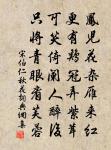 鳳兒花朵雁來紅
更有鷄冠弄紫茸
可笑倚闌人醉後
只將青眼看芙蓉
宋伯仁秋花調